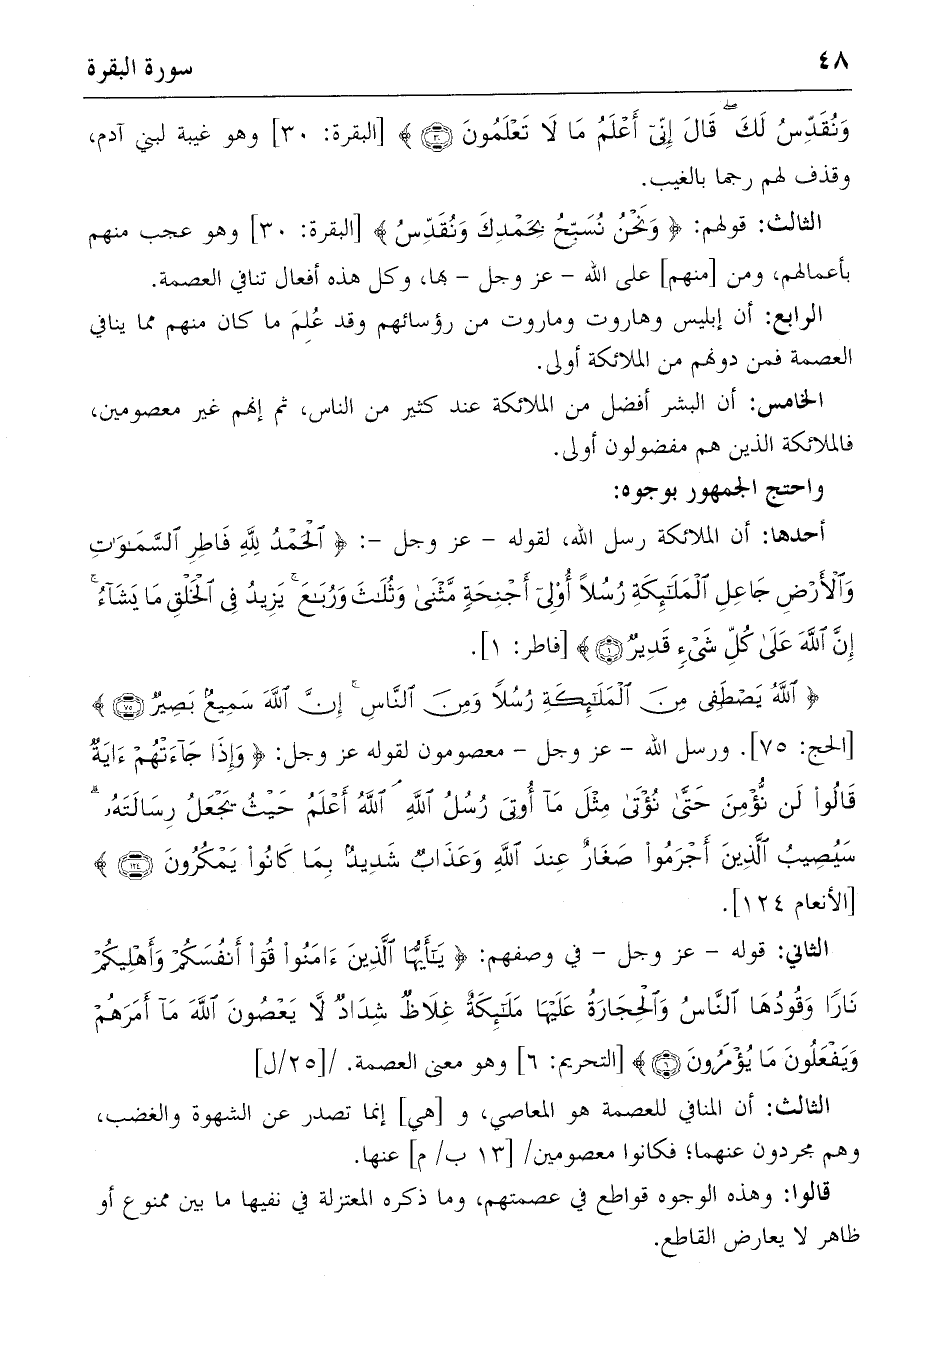 ٤٨
سورة البقرة
وَنُقَدِّسُ لَكَ ۖ قَالَ إِنِّىٓ أَعْلَمُ مَا لَا تَعْلَمُونَ ۝٣٠ ﴾ [البقرة: ٣٠] وهو غيبة لبني آدم،
وقذف لهم رجما بالغيب.
الثالث: قولهم: ﴿ وَنَحْنُ نُسَبِّحُ بِحَمْدِكَ وَنُقَدِّسُ ﴾ [البقرة: ٣٠] وهو عجب منهم
بأعمالهم، ومن [منهم] على الله – عز وجل – بها، وكل هذه أفعال تنافي العصمة.
الرابع: أن إبليس وهاروت وماروت من رؤسائهم وقد عُلِمَ ما كان منهم مما ينافي
العصمة فمن دونهم من الملائكة أولى.
الخامس: أن البشر أفضل من الملائكة عند كثير من الناس، ثم إنهم غير معصومين،
فالملائكة الذين هم مفضولون أولى.
واحتج الجمهور بوجوه:
أحدها: أن الملائكة رسل الله، لقوله – عز وجل –: ﴿ ٱلْحَمْدُ لِلَّهِ فَاطِرِ ٱلسَّمَٰوَٰتِ
وَٱلْأَرْضِ جَاعِلِ ٱلْمَلَٰٓئِكَةِ رُسُلًا أُو۟لِىٓ أَجْنِحَةٍ مَّثْنَىٰ وَثُلَٰثَ وَرُبَٰعَ ۚ يَزِيدُ فِى ٱلْخَلْقِ مَا يَشَآءُ ۚ
إِنَّ ٱللَّهَ عَلَىٰ كُلِّ شَىْءٍ قَدِيرٌ ۝١ ﴾ [فاطر: ١].
﴿ ٱللَّهُ يَصْطَفِى مِنَ ٱلْمَلَٰٓئِكَةِ رُسُلًا وَمِنَ ٱلنَّاسِ ۚ إِنَّ ٱللَّهَ سَمِيعٌۢ بَصِيرٌ ۝٧٥ ﴾
[الحج: ٧٥]. ورسل الله – عز وجل – معصومون لقوله عز وجل: ﴿ وَإِذَا جَآءَتْهُمْ ءَايَةٌ
قَالُوا۟ لَن نُّؤْمِنَ حَتَّىٰ نُؤْتَىٰ مِثْلَ مَآ أُوتِىَ رُسُلُ ٱللَّهِ ۘ ٱللَّهُ أَعْلَمُ حَيْثُ يَجْعَلُ رِسَالَتَهُۥ ۗ
سَيُصِيبُ ٱلَّذِينَ أَجْرَمُوا۟ صَغَارٌ عِندَ ٱللَّهِ وَعَذَابٌ شَدِيدٌۢ بِمَا كَانُوا۟ يَمْكُرُونَ ۝١٢٤ ﴾
[الأنعام ١٢٤].
الثاني: قوله – عز وجل – في وصفهم: ﴿ يَٰٓأَيُّهَا ٱلَّذِينَ ءَامَنُوا۟ قُوٓا۟ أَنفُسَكُمْ وَأَهْلِيكُمْ
نَارًا وَقُودُهَا ٱلنَّاسُ وَٱلْحِجَارَةُ عَلَيْهَا مَلَٰٓئِكَةٌ غِلَاظٌ شِدَادٌ لَّا يَعْصُونَ ٱللَّهَ مَآ أَمَرَهُمْ
وَيَفْعَلُونَ مَا يُؤْمَرُونَ ۝٦ ﴾ [التحريم: ٦] وهو معنى العصمة. /[٢٥/ل]
الثالث: أن المنافي للعصمة هو المعاصي، و [هي] إنما تصدر عن الشهوة والغضب،
وهم مجردون عنهما؛ فكانوا معصومين/ [١٣ ب/ م] عنها.
قالوا: وهذه الوجوه قواطع في عصمتهم، وما ذكره المعتزلة في نفيها ما بين ممنوع أو
ظاهر لا يعارض القاطع.